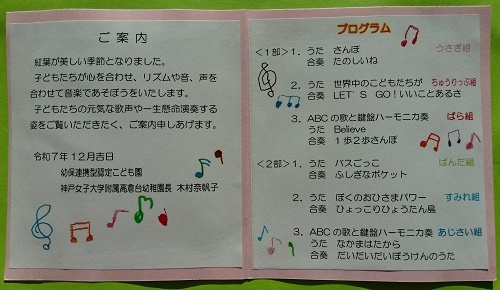 ご案内
紅葉が美しい季節となりました。
子どもたちが心を合わせ、リズムや音、声を
合わせて音楽であそぼうをいたします。
子どもたちの元気な歌声や一生懸命演奏する
姿をご覧いただきたく、ご案内申しあげます。
令和7年12月吉日
幼保連携型認定こども園
神戸女子大学附属高倉台幼稚園長 木村奈帆子
プログラム
＜1部＞1. うた さんぽ うさぎ組
合奏 たのしいね
2. うた 世界中のこどもたちが ちゅうりっぷ組
合奏 LET'S GO!いいことあるさ
3. ABCの歌と鍵盤ハーモニカ奏 ばら組
うた Believe
合奏 1歩2歩さんぽ
＜2部＞1. うた バスごっこ ぱんだ組
合奏 ふしぎなポケット
2. うた ぼくのおひさまパワー すみれ組
合奏 ひょっこりひょうたん島
3. ABCの歌と鍵盤ハーモニカ奏 あじさい組
うた なかまはたから
合奏 だいだいだいぼうけんのうた